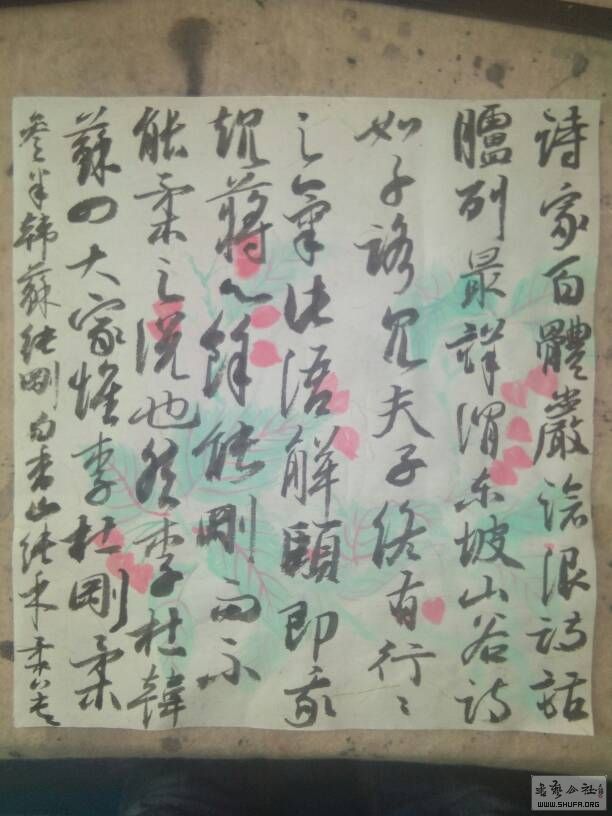 詩家百體嚴滄浪詩話
臚列最詳謂東坡山谷詩
如子路見夫子終有行〻
之氣此語解頤即我
規蔣心餘能剛而不
能柔之說也然李杜韓
蘇四大家惟李杜剛柔
叁半韓蘇純剛白香山純乎柔
書藝公社
WWW.SHUFA.ORG